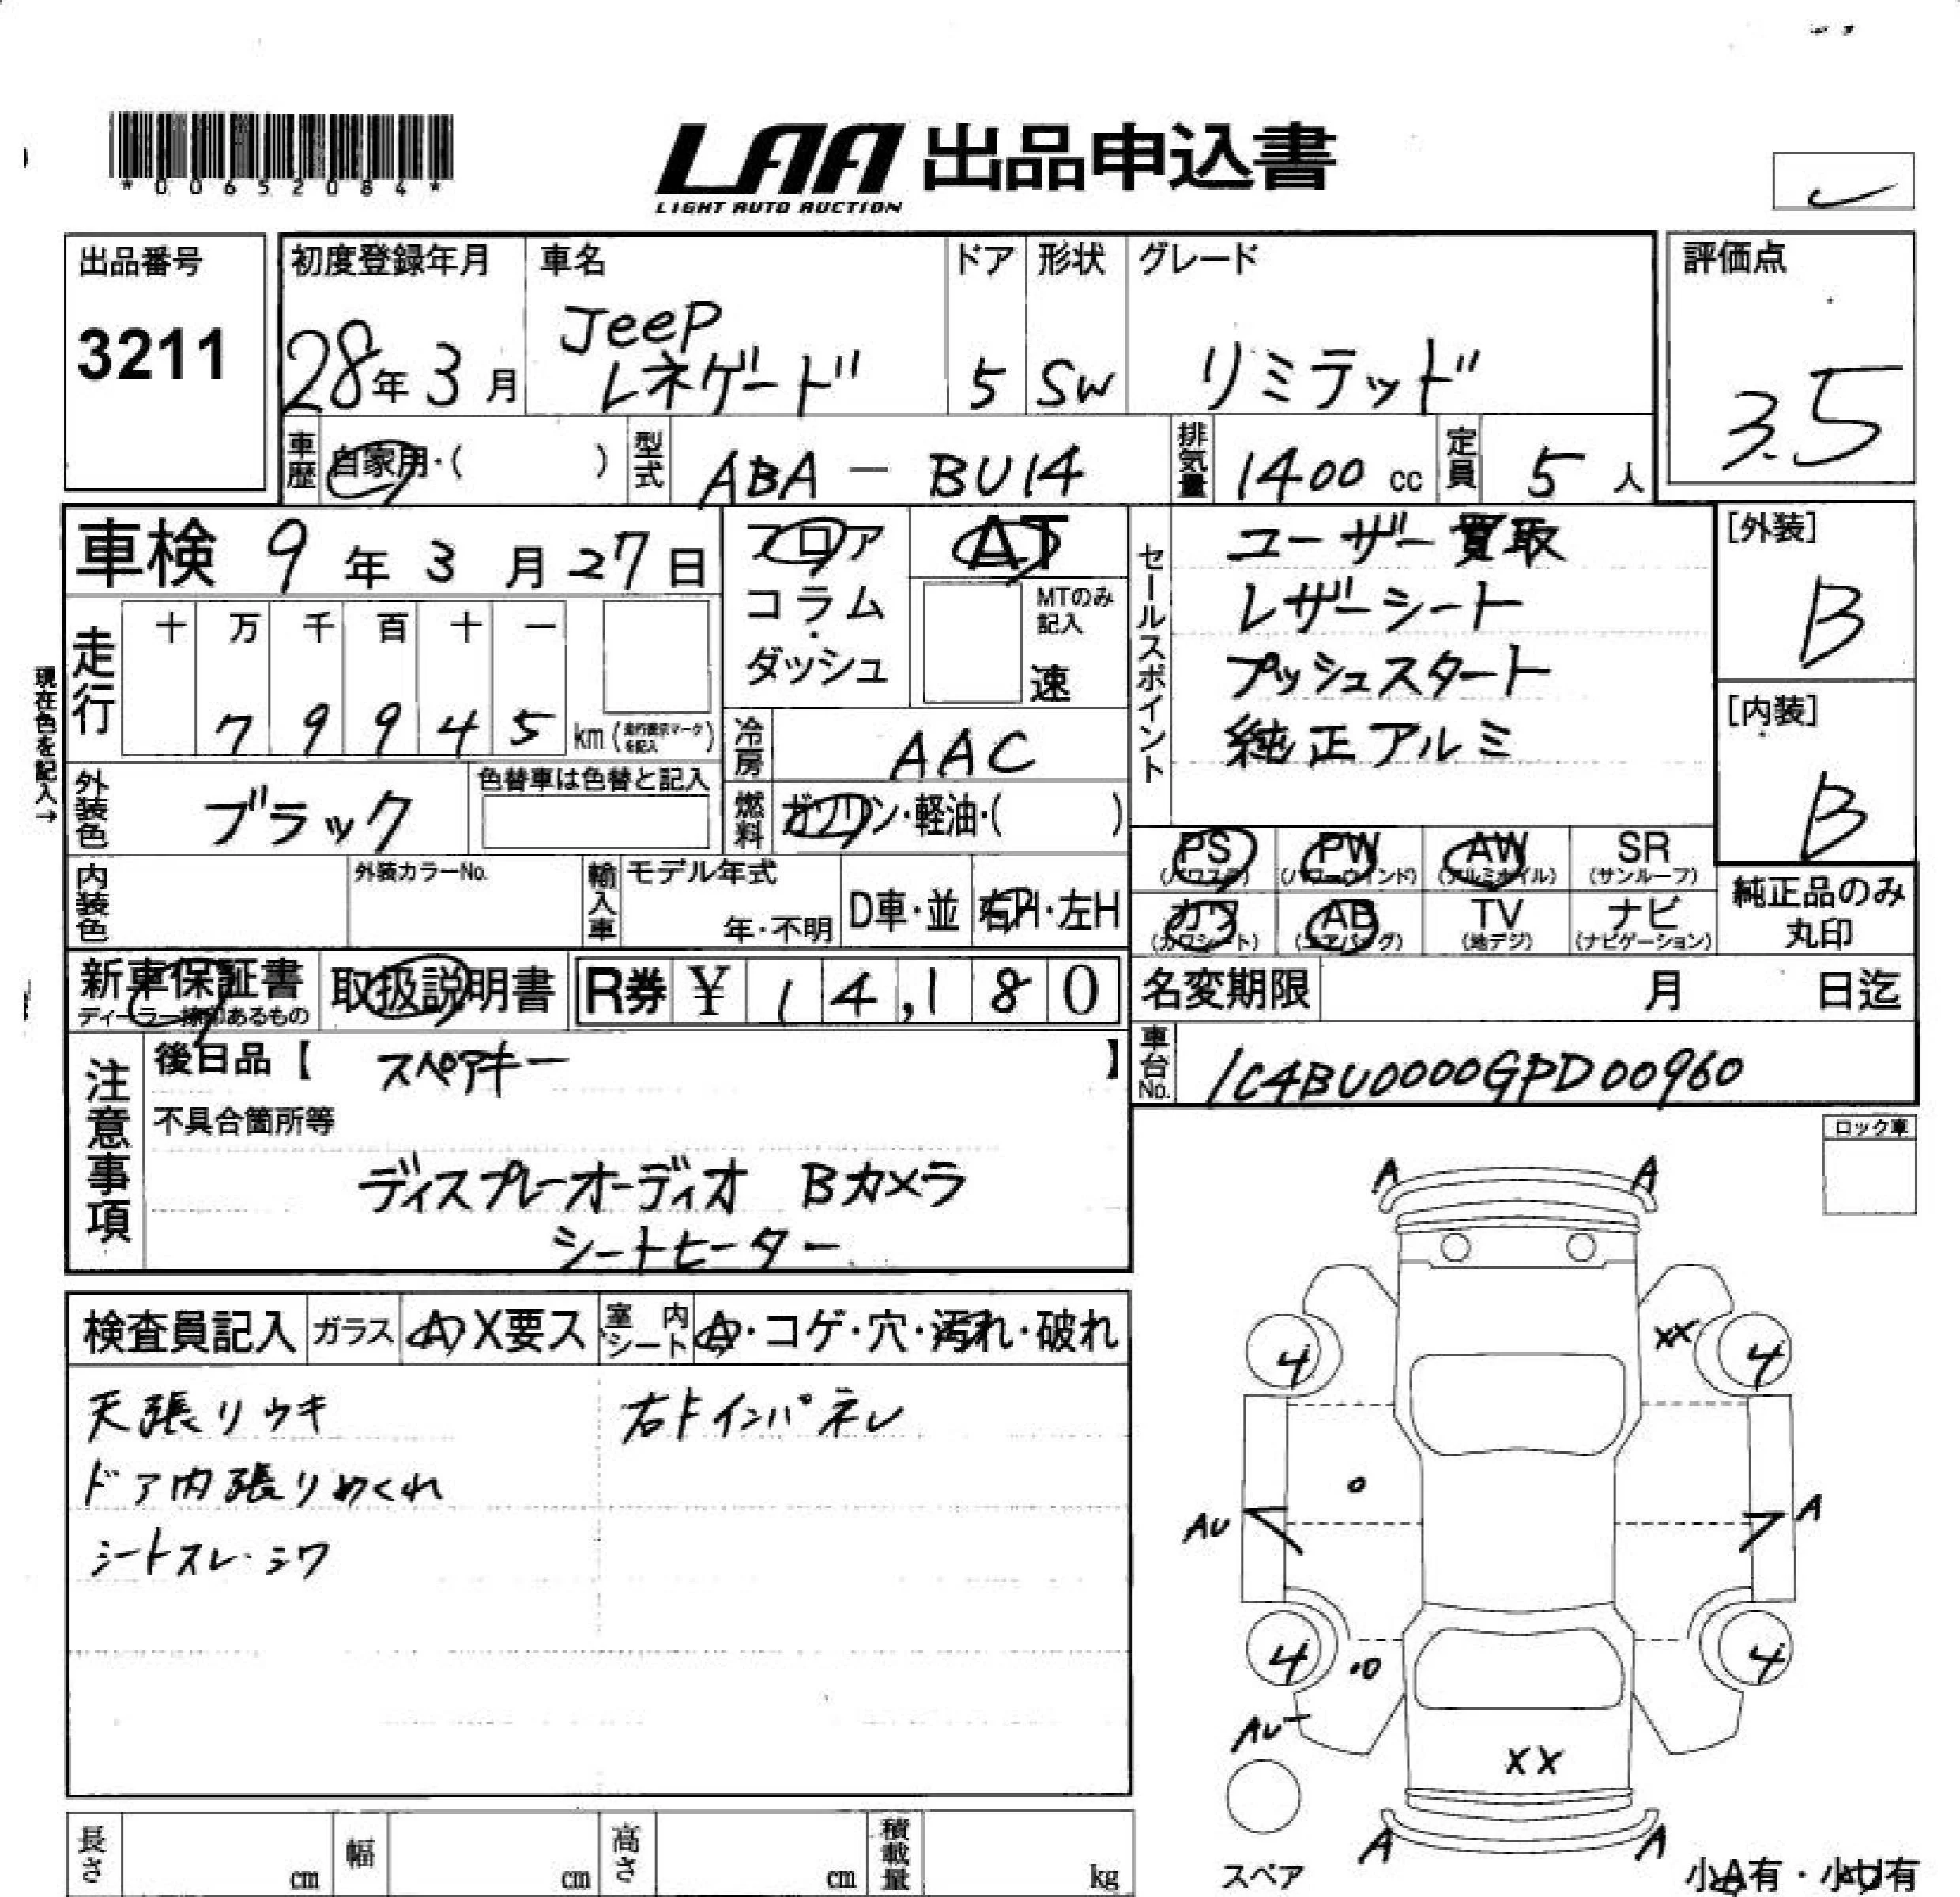 *00652084*
LAA 出品申込書
LIGHT AUTO AUCTION
出品番号
3211
初度登録年月
28年3月
車名
Jeep
レネゲード
ドア
5
形状
SW
グレード
リミテッド
評価点
3.5
車歴
自家用・( )
型式
ABA-BU14
排気量
1400 cc
定員
5人
車検 9年3月27日
フロア
コラム・
ダッシュ
AT
MTのみ
記入
速
セールスポイント
ユーザー買取
レザーシート
プッシュスタート
純正アルミ
[外装]
B
[内装]
B
現在色を記入→
走行
十 万 千 百 十 一
7 9 9 4 5 km
冷房
AAC
外装色
ブラック
色替車は色替と記入
燃料
ガソリン・軽油・( )
内装色
外装カラーNo.
輸入車
モデル年式
年・不明
D車・並
右H・左H
PS
(パワステ)
PW
(パワーウインド)
AW
(アルミホイル)
SR
(サンルーフ)
カワ
(カワシート)
AB
(エアバッグ)
TV
(地デジ)
ナビ
(ナビゲーション)
純正品のみ
丸印
新車保証書
取扱説明書
R券 ¥ 14,180
名変期限 月 日迄
車台No.
1C4BU0000GPD00960
注意事項
後日品【 スペアキー 】
不具合箇所等
ディスプレーオーディオ Bカメラ
シートヒーター
ロック車
検査員記入
ガラス
A X要ス
室内シート
A・コゲ・穴・汚れ・破れ
天張りウキ
右Fインパネレ
ドア内張りめくれ
シートスレ・シワ
A A
4 XX 4
AU A
4 4
AU
XX
A A
スペア
小A有・小U有
長さ cm
幅 cm
高さ cm
積載量 kg